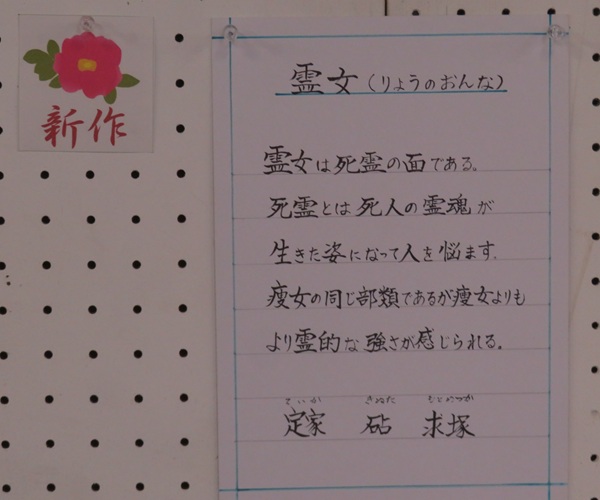 新作
霊女(りょうのおんな)
霊女は死霊の面である。
死霊とは死人の霊魂が
生きた姿になって人を悩ます。
痩女の同じ部類であるが痩女よりも
より霊的な強さが感じられる。
ていか きぬた もとめづか
定家 砧 求塚